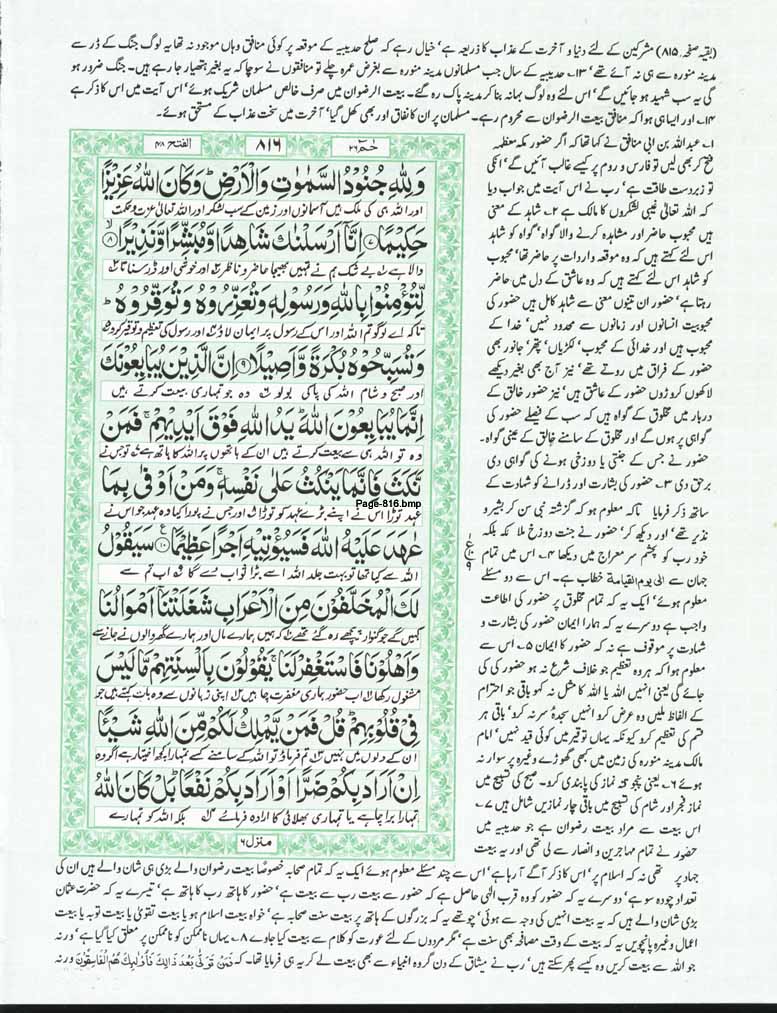 (بقیہ صفحہ ۸۱۵) مشرکین کے لئے دنیا و آخرت کے عذاب کا ذریعہ ہے' خیال رہے کہ صلح حدیبیہ کے موقعہ پر کوئی منافق وہاں موجود نہ تھا یہ لوگ جنگ کے ڈر سے
مدینہ منورہ سے ہی نہ آئے تھے' ۱۳؎ حدیبیہ کے سال جب مسلمانوں مدینہ منورہ سے بغرض عمرہ چلے تو منافقوں نے سوچا کہ یہ بغیر ہتھیار جا رہے ہیں۔ جنگ ضرور ہو
گی یہ سب شہید ہو جائیں گے' اس لئے وہ لوگ بہانہ بنا کر مدینہ پاک رہ گئے۔ بیعت الرضوان میں صرف خالص مسلمان شریک ہوئے' اس آیت میں اس کا ذکر ہے
۱۴؎ اور ایسا ہی ہوا کہ منافق بیعت الرضوان سے محروم رہے۔ مسلمان پر ان کا نفاق اور بھی کھل گیا' آخرت میں سخت عذاب کے مستحق ہوئے۔
حٰمٓ ۲۶
۸۱۶
الفتح ۴۸
وَلِلّٰهِ جُنُوْدُ السَّمٰوٰتِ وَالْاَرْضِ ؕ وَكَانَ اللّٰهُ عَزِيْزًا
اور اللہ ہی کی ملک ہیں آسمانوں اور زمین کے سب لشکر اور اللہ تعالیٰ عزت و حکمت
حَكِيْمًا ۷ اِنَّآ اَرْسَلْنٰكَ شَاهِدًا وَّمُبَشِّرًا وَّنَذِيْرًا ۸
والا ہے بے شک ہم نے تمہیں بھیجا حاضر و ناظر اور خوشی اور ڈر سناتا
لِّتُؤْمِنُوْا بِاللّٰهِ وَرَسُوْلِهٖ وَتُعَزِّرُوْهُ وَتُوَقِّرُوْهُ ؕ
تاکہ اے لوگو تم اللہ اور اس کے رسول پر ایمان لاؤ اور رسول کی تعظیم و توقیر کرو
وَتُسَبِّحُوْهُ بُكْرَةً وَّاَصِيْلًا ۹ اِنَّ الَّذِيْنَ يُبَايِعُوْنَكَ
اور صبح و شام اللہ کی پاکی بولو وہ جو تمہاری بیعت کرتے ہیں
اِنَّمَا يُبَايِعُوْنَ اللّٰهَ ؕ يَدُ اللّٰهِ فَوْقَ اَيْدِيْهِمْ ۚ فَمَنْ
وہ تو اللہ ہی سے بیعت کرتے ہیں ان کے ہاتھوں پر اللہ کا ہاتھ ہے تو جس نے
نَّكَثَ فَاِنَّمَا يَنْكُثُ عَلٰى نَفْسِهٖ ۚ وَمَنْ اَوْفٰى بِمَا
Page-816.bmp
عہد توڑا اس نے اپنے بڑے عہد کو توڑا اور جس نے پورا کیا وہ عہد جو اس نے
عٰهَدَ عَلَيْهُ اللّٰهَ فَسَيُؤْتِيْهِ اَجْرًا عَظِيْمًا ۱۰ سَيَقُوْلُ
اللہ سے کیا تھا تو بہت جلد اللہ اسے بڑا ثواب دے گا اب تم سے
لَكَ الْمُخَلَّفُوْنَ مِنَ الْاَعْرَابِ شَغَلَتْنَآ اَمْوَالُنَا
کہیں گے جو گنوار پیچھے رہ گئے تھے کہ ہمیں ہمارے مال اور ہمارے گھر والوں نے جانے سے
وَاَهْلُوْنَا فَاسْتَغْفِرْ لَنَا ۚ يَقُوْلُوْنَ بِاَلْسِنَتِهِمْ مَّا لَيْسَ
مشغول رکھا اب حضور ہماری مغفرت چاہیں اپنی زبانوں سے وہ بات کہتے ہیں جو
فِيْ قُلُوْبِهِمْ ؕ قُلْ فَمَنْ يَّمْلِكُ لَكُمْ مِّنَ اللّٰهِ شَيْـًٔا
ان کے دلوں میں نہیں تم فرماؤ تو اللہ کے سامنے کسے تمہارا کچھ اختیار ہے اگر وہ
اِنْ اَرَادَ بِكُمْ ضَرًّا اَوْ اَرَادَ بِكُمْ نَفْعًا ؕ بَلْ كَانَ اللّٰهُ
تمہارا برا چاہے یا تمہاری بھلائی کا ارادہ فرمائے بلکہ اللہ کو تمہارے
منزل ۶
۱؎ عبداللہ بن ابی منافق نے کہا تھا کہ اگر حضور مکہ معظمہ
فتح کر بھی لیں تو فارس و روم پر کیسے غالب آئیں گے' انکی
تو زبردست طاقت ہے' رب نے اس آیت میں جواب دیا
کہ اللہ تعالیٰ غیبی لشکروں کا مالک ہے ۲؎ شاہد کے معنی
ہیں محبوب حاضر اور مشاہدہ کرنے والا گواہ' گواہ کو شاہد
اس لئے کہتے ہیں کہ وہ موقعہ واردات پر حاضر تھا' محبوب
کو شاہد اس لئے کہتے ہیں کہ وہ عاشق کے دل میں حاضر
رہتا ہے' حضور ان تینوں معنی سے شاہد کامل ہیں حضور کی
محبوبیت انسانوں اور زمانوں سے محدود نہیں' خدا کے
محبوب ہیں اور خدائی کے محبوب' لکڑیاں' پتھر' جانور بھی
حضور کے فراق میں روتے تھے' نیز آج بھی بغیر دیکھے
لاکھوں کروڑوں حضور کے عاشق ہیں' نیز حضور خالق کے
دربار میں مخلوق کے گواہ ہیں کہ سب کے فیصلے حضور کی
گواہی پر ہوں گے اور مخلوق کے سامنے خالق کے عینی گواہ۔
حضور نے جس کے جنتی یا دوزخی ہونے کی گواہی دی
برحق دی ۳؎ حضور کی بشارت اور ڈرانے کو شہادت کے
ساتھ ذکر فرمایا تاکہ معلوم ہو کہ گزشتہ نبی سن کر بشیر و
نذیر تھے' اور دیکھ کر' حضور نے جنت دوزخ ملائکہ بلکہ
خود رب کو بچشم سر معراج میں دیکھا ۴؎ اس میں تمام
جہان سے الیٰ یوم القیامۃ خطاب ہے۔ اس سے دو مسئلے
معلوم ہوئے' ایک یہ کہ تمام مخلوق پر حضور کی اطاعت
واجب ہے دوسرے یہ کہ ہمارا ایمان حضور کی بشارت و
شہادت پر موقوف ہے نہ کہ حضور کا ایمان ۵؎ اس سے
معلوم ہوا کہ ہر وہ تعظیم جو خلاف شرع نہ ہو حضور کی کی
جائے گی یعنی انہیں اللہ یا اللہ کا مثل نہ کہو باقی جو احترام
کے الفاظ ملیں وہ عرض کرو انہیں سجدہ سر نہ کرو' باقی ہر
قسم کی تعظیم کرو کیونکہ یہاں توقیر میں کوئی قید نہیں' امام
مالک مدینہ منورہ کی زمین میں کبھی گھوڑے وغیرہ پر سوار نہ
ہوئے ۶؎ یعنی پنج وقتہ نماز کی پابندی کرو۔ صبح کی تسبیح میں
نماز فجر اور شام کی تسبیح میں باقی چار نمازیں شامل ہیں ۷؎
اس بیعت سے مراد بیعت رضوان ہے جو حدیبیہ میں
حضور نے تمام مہاجرین و انصار سے لی تھی اور یہ بیعت
جہاد پر تھی نہ کہ اسلام پر' اس کا ذکر آگے آ رہا ہے' اس سے چند مسئلے معلوم ہوئے ایک یہ کہ تمام صحابہ خصوصاً بیعت رضوان والے بڑی ہی شان والے ہیں ان کی
تعداد چودہ سو ہے' دوسرے یہ کہ حضور کو وہ قرب الٰہی حاصل ہے کہ حضور سے بیعت رب سے بیعت ہے' حضور کا ہاتھ رب کا ہاتھ ہے' تیسرے یہ کہ حضرت عثمان
بڑی شان والے ہیں کہ یہ بیعت انہیں کی وجہ سے ہوئی' چوتھے یہ کہ بزرگوں کے ہاتھ پر بیعت سنت صحابہ ہے' خواہ بیعت اسلام ہو یا بیعت تقویٰ یا بیعت توبہ یا بیعت
اعمال وغیرہ پانچویں یہ کہ بیعت کے وقت مصافحہ بھی سنت ہے' مگر مردوں کے لئے عورت کو کلام سے بیعت کیا جاوے ۸؎ یہاں ناممکن کو ناممکن پر معلق کیا گیا ہے' ورنہ
جو اللہ سے بیعت کریں وہ کیسے پھر سکتے ہیں' رب نے میثاق کے دن گروہ انبیاء سے بھی بیعت لے کر یہ ہی فرمایا تھا۔ کہ فَمَنْ تَوَلّٰى بَعْدَ ذَالِكَ فَأُولٰٓئِكَ هُمُ الْفَاسِقُوْنَ ورنہ